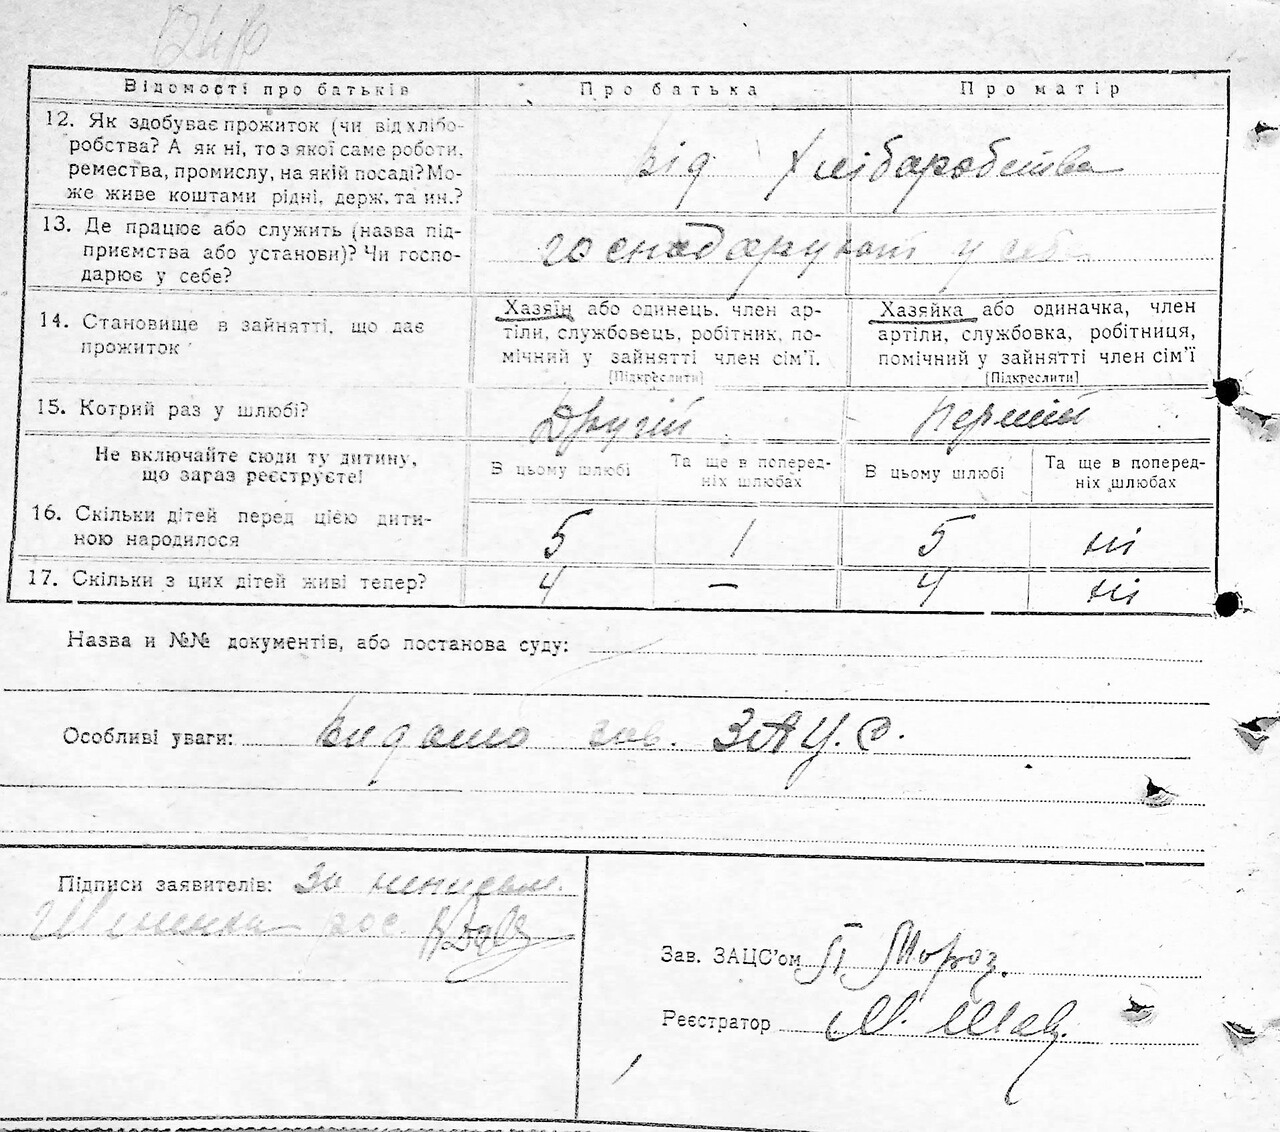 Відомості про батьків Про батька Про матір
12. Як здобуває прожиток (чи від хлібо-
робства? А як ні, то з якої саме роботи,
ремества, промислу, на якій посаді? Мо-
же живе коштами рідні, держ. та ин.?
від хліборобства
13. Де працює або служить (назва під-
приємства або установи)? Чи госпо-
дарює у себе?
господарюют у себе
14. Становище в зайнятті, що дає
прожиток
Хазяїн або одинець, член ар-
тіли, службовець, робітник, по-
мічний у зайнятті член сім'ї.
[Підкреслити]
Хазяйка або одиначка, член
артіли, службовка, робітниця,
помічний у зайнятті член сім'ї
[Підкреслити]
15. Котрий раз у шлюбі? Другій Первий
Не включайте сюди ту дитину,
що загаз реєструєте!
В цьому шлюбі
Та ще в поперед-
ніх шлюбах
В цьому шлюбі
Та ще в поперед-
ніх шлюбах
16. Скільки дітей перед цією дити-
ною народилося
5 1 5 ні
17. Скільки з цих дітей живі тепер? 4 – 4 ні
Назва и №№ документів, або постанова суду:
Особливі уваги: видано зав. ЗАЦ.С.
Підписи заявителів: За неписьм.
рос.
Зав. ЗАЦС'ом П Мороз.
Реєстратор М.